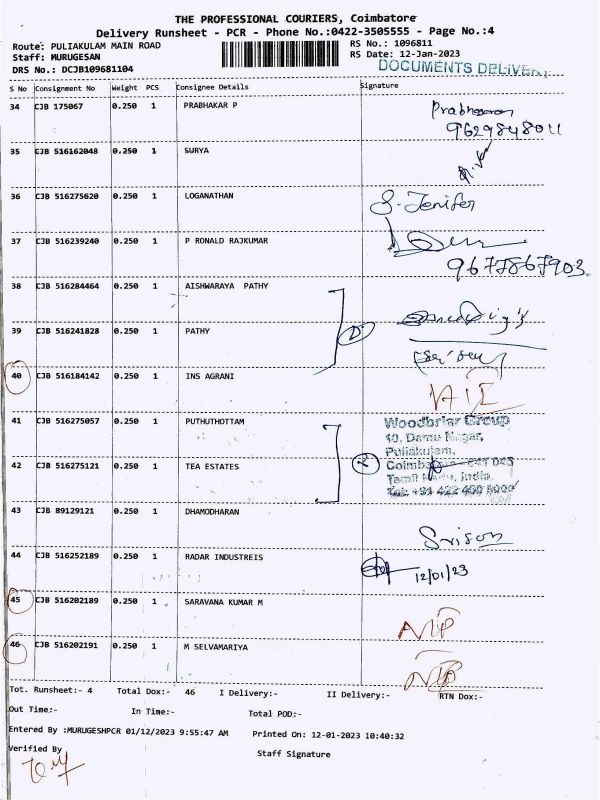 THE PROFESSIONAL COURIERS, Coimbatore
Delivery Runsheet - PCR - Phone No.:0422-3505555 - Page No.:4
Route: PULIAKULAM MAIN ROAD RS No.: 1096811
Staff: MURUGESAN RS Date: 12-Jan-2023
DRS No.: DCJB109681104 DOCUMENTS
S No Consignment No Weight PCS Consignee Details Signature
34 CJB 175067 0.250 1 PRABHAKAR P
9629848011
35 CJB 516162048 0.250 1 SURYA
36 CJB 516275620 0.250 1 LOGANATHAN S. Jenifer
37 CJB 516239240 0.250 1 P RONALD RAJKUMAR
9677867903.
38 CJB 516284464 0.250 1 AISHWARAYA PATHY
39 CJB 516241828 0.250 1 PATHY
40 CJB 516184142 0.250 1 INS AGRANI
41 CJB 516275057 0.250 1 PUTHUTHOTTAM Woodbriar Group
10, Damu Nagar,
Puliakulam,
42 CJB 516275121 0.250 1 TEA ESTATES
Tamil Nadu, India.
43 CJB 89129121 0.250 1 DHAMODHARAN
44 CJB 516252189 0.250 1 RADAR INDUSTREIS 12/01/23
45 CJB 516202189 0.250 1 SARAVANA KUMAR M
46 CJB 516202191 0.250 1 M SELVAMARIYA
Tot. Runsheet:- 4 Total Dox:- 46 I Delivery:- II Delivery:- RTN Dox:-
Out Time:- In Time:- Total POD:-
Entered By :MURUGESHPCR 01/12/2023 9:55:47 AM Printed On: 12-01-2023 10:40:32
Verified By Staff Signature